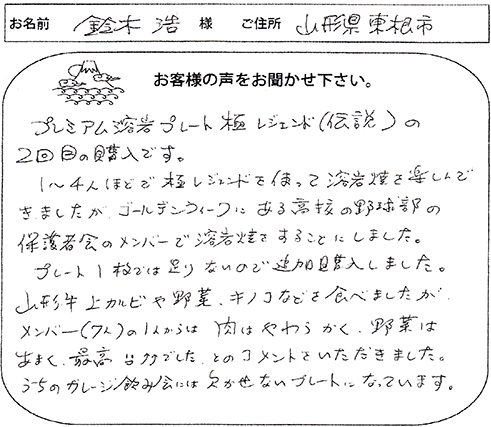 お名前 鈴木 浩 様 ご住所 山形県東根市
お客様の声をお聞かせ下さい。
プレミアム溶岩プレート極レジェンド(伝説)の
2回目の購入です。
1〜4人ほどで極レジェンドを使って溶岩焼を楽しんで
きましたが、ゴールデンウィークにある高校の野球部の
保護者会のメンバーで溶岩焼をすることにしました。
プレート1枚では足りないので追加購入しました。
山形牛上カルビや野菜、キノコなどを食べましたが、
メンバー(7人)の1人からは 肉はやわらかく、野菜は
あまく、最高 でした。とのコメントをいただきました。
うちのガレージ飲み会には欠かせないプレートになっています。